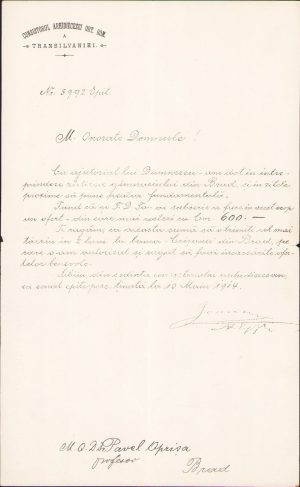 CONSISTORUL ARHIDIECESAN ORT. ROM.
A
TRANSILVANIEI.
Nr. 5992 Epit.
M. Onorate Domnule!
Cu ajutorul lui Dumnezeu am dat in intre-
prindere zidirea gimnaziului din Brad, și in zilele
proxime să pune piatra fundamentală.
Fiind că și P. D. Ta ai subscris a face in acest scop
un ofert din care mai
600.—
Te rugăm, ca aceasta sumă să o trimiți cel mai
târziu in luna la banca Crișana din Brad, pe
care o am autorizat și rugat să facă incassările ofer-
telor benevole.
Sibiiu, din ședința consistorului arhidiecesan,
ca senat epitropesc, ținută la 10 Maiu 1914.
M. O. D. Dr. Pavel Oprișa
profesor
Brad